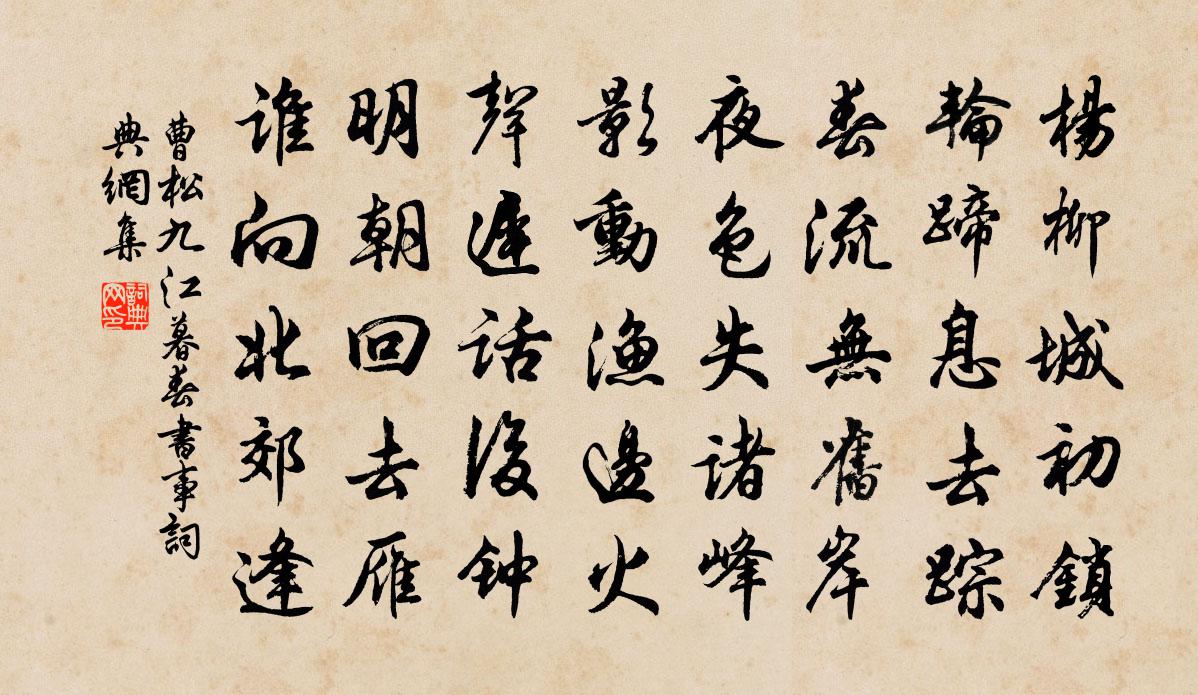 楊柳城初鎖
輪蹄息去踪
春流無舊岸
夜色失诸峰
影動漁邊火
聲遲話後钟
明朝回去雁
誰向北郊逢
曹松九江暮春書事詞
典網集
詞典
网印